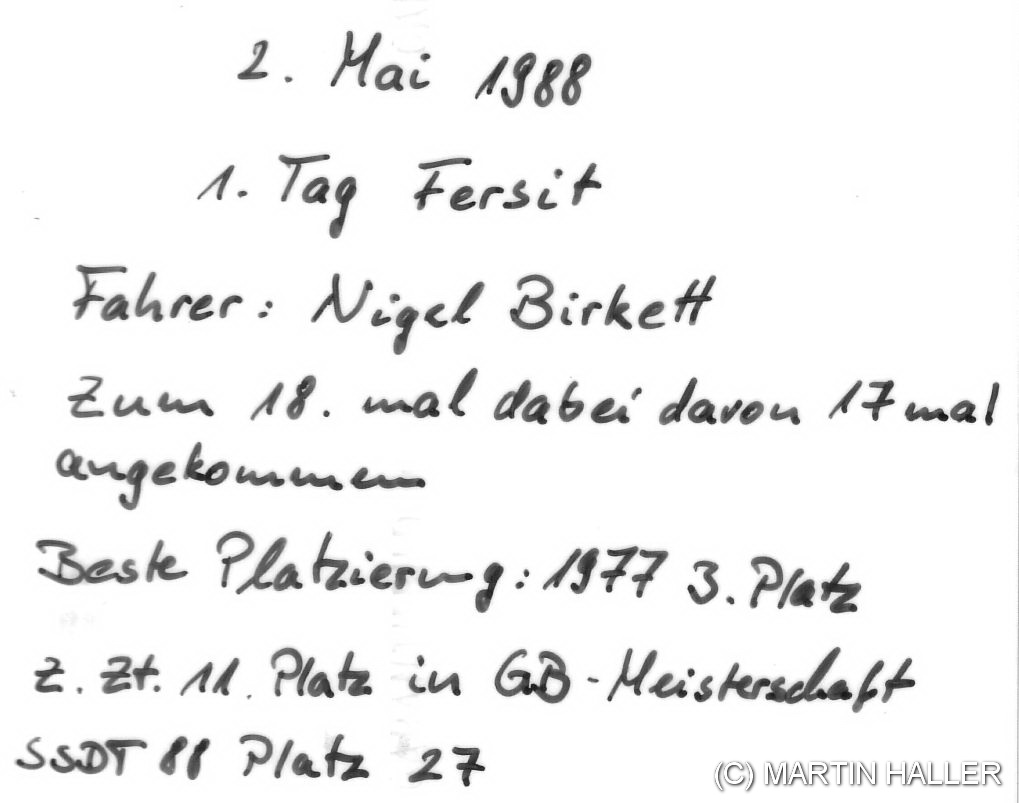 2. Mai 1988
1. Tag Fersit
Fahrer: Nigel Birkett
Zum 18. mal dabei davon 17 mal
angekommen
Beste Platzierung: 1977 3. Platz
z. Zt. 11. Platz in GB-Meisterschaft
SSDT 88 Platz 27
(C) MARTIN HALLER